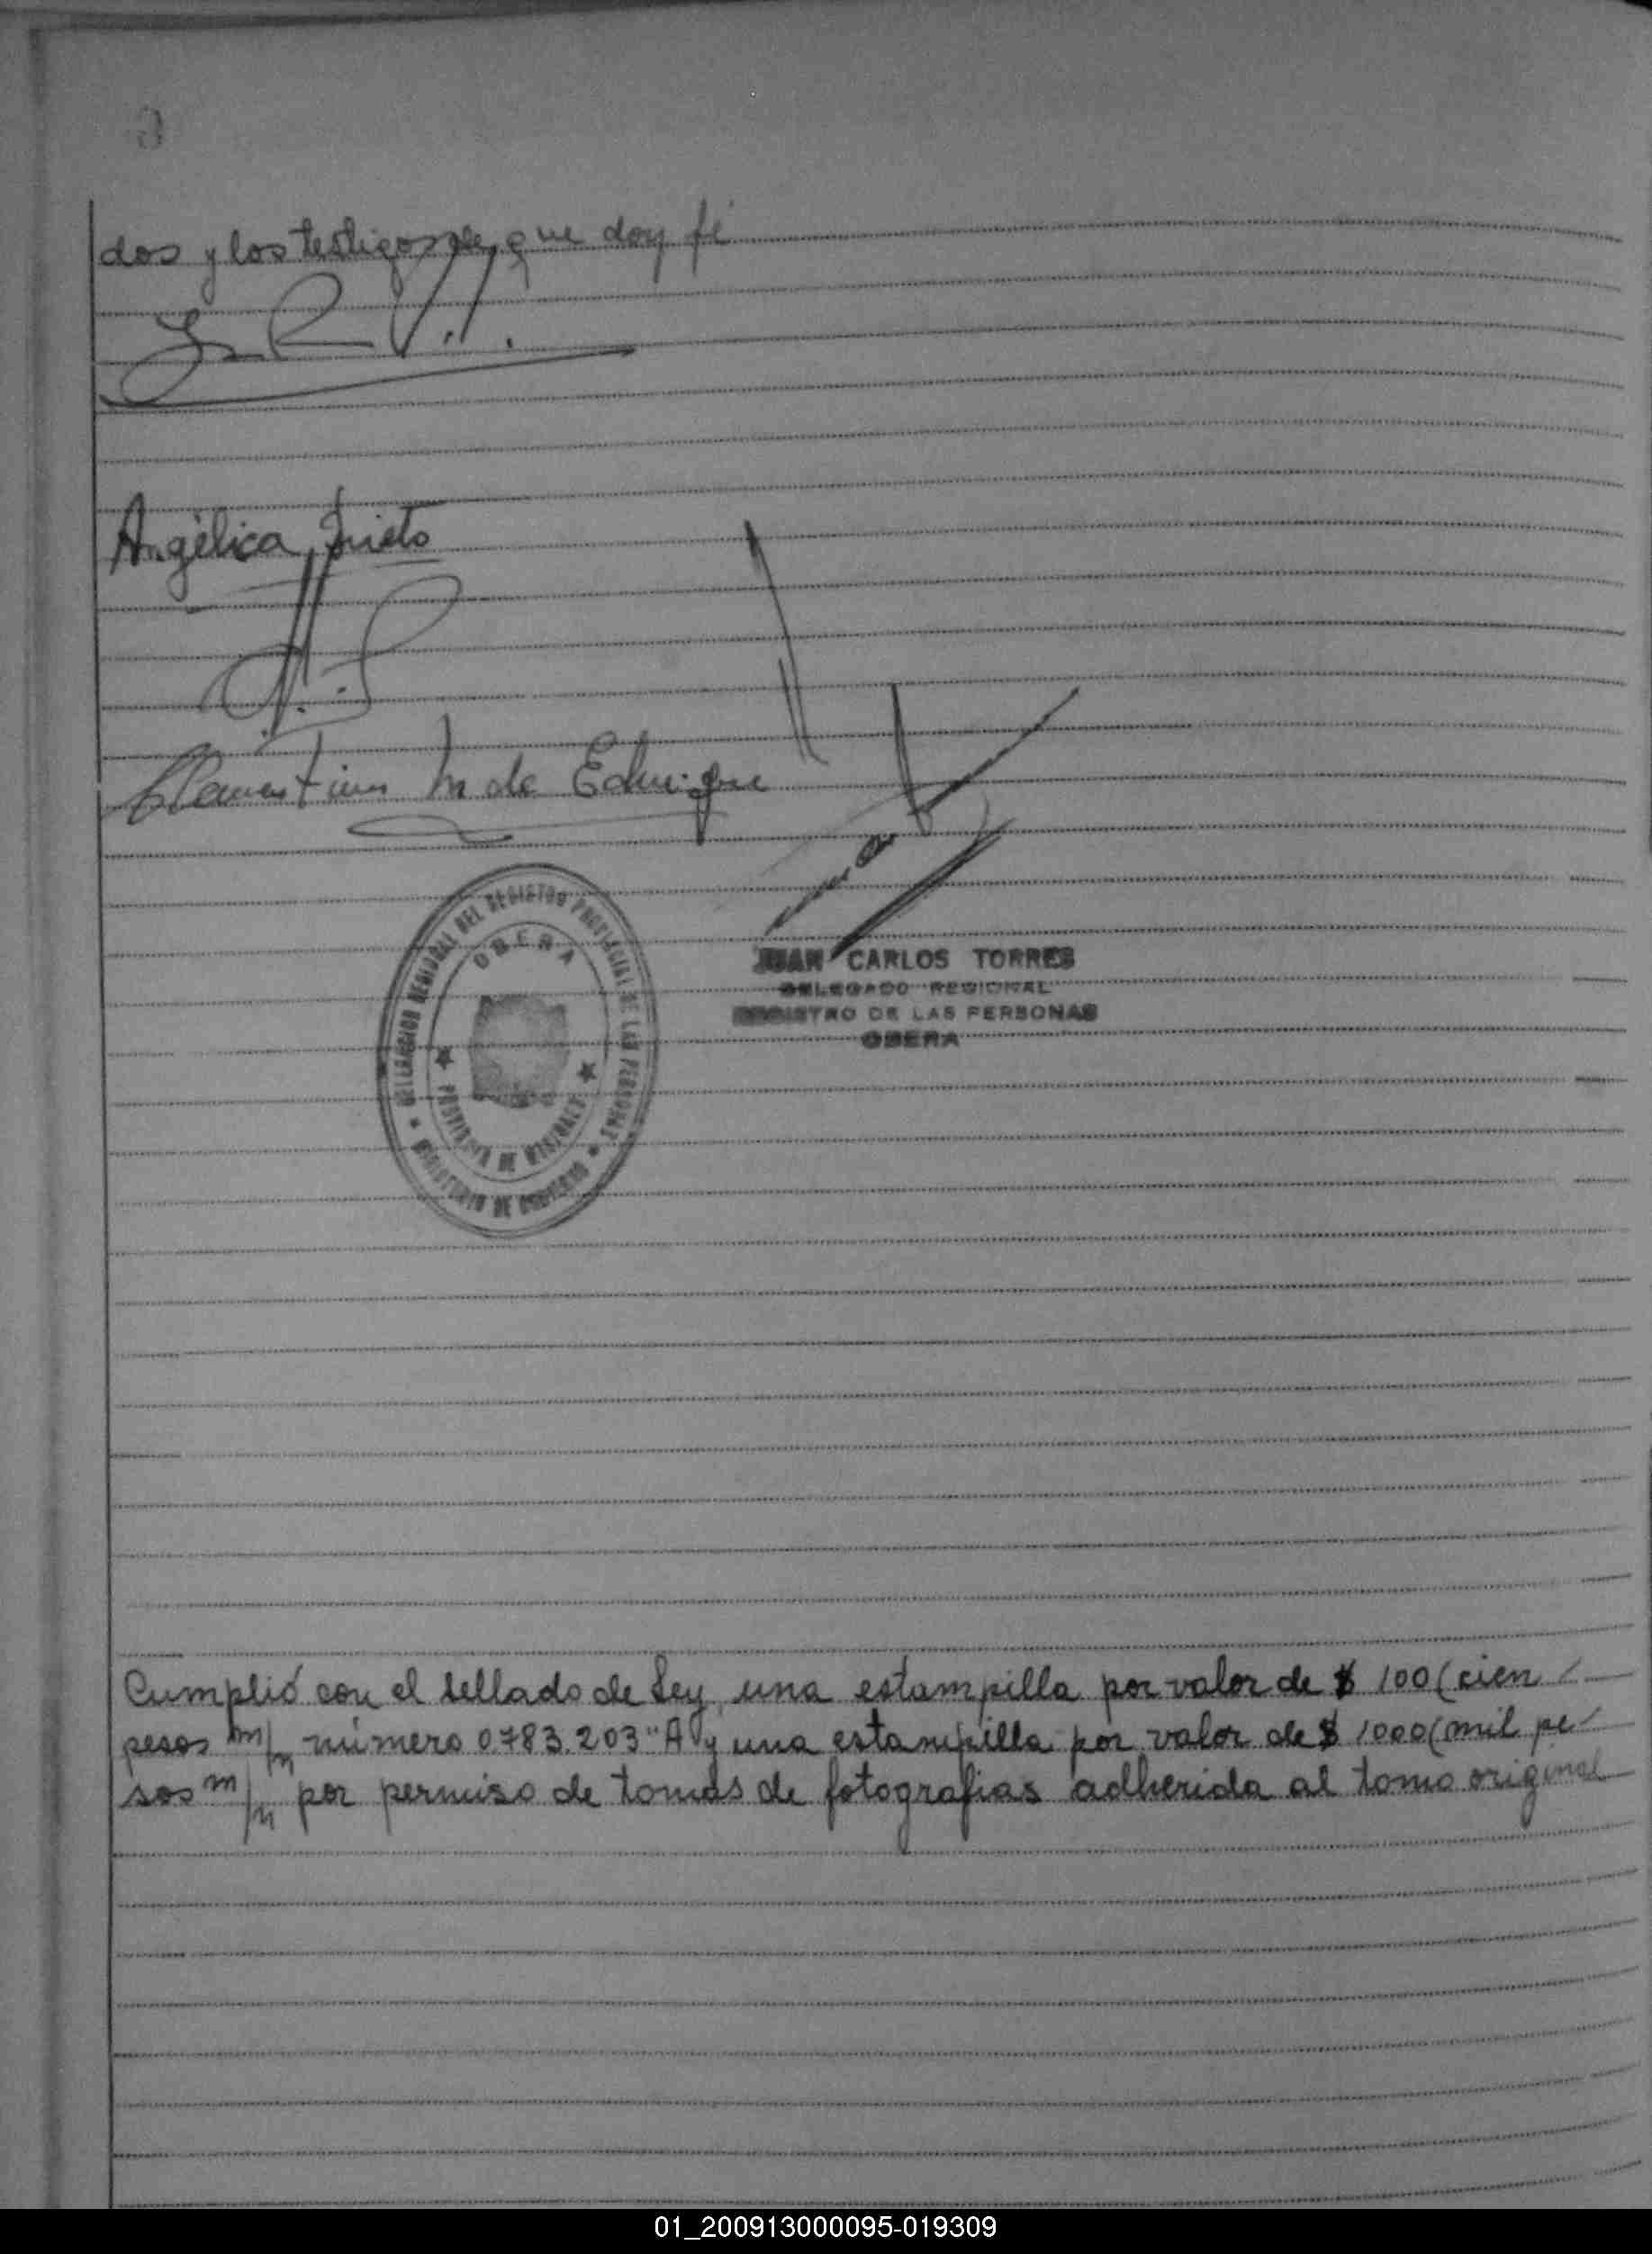 dos y los testigos de que doy fé
Angélica Prieto
M de
OBERA
PROVINCIA DE MISIONES
DELEGACION REGIONAL DEL REGISTRO PROVINCIAL DE LAS PERSONAS
MINISTERIO DE GOBIERNO
JUAN CARLOS TORRES
DELEGADO REGIONAL
REGISTRO DE LAS PERSONAS
OBERA
Cumplió con el sellado de Ley, una estampilla por valor de $ 100 (cien
pesos m/n número 0.783.203 "A" y una estampilla por valor de $ 1000 (mil pe
sos m/n por permiso de tomas de fotografias adherida al tomo original
01_200913000095-019309